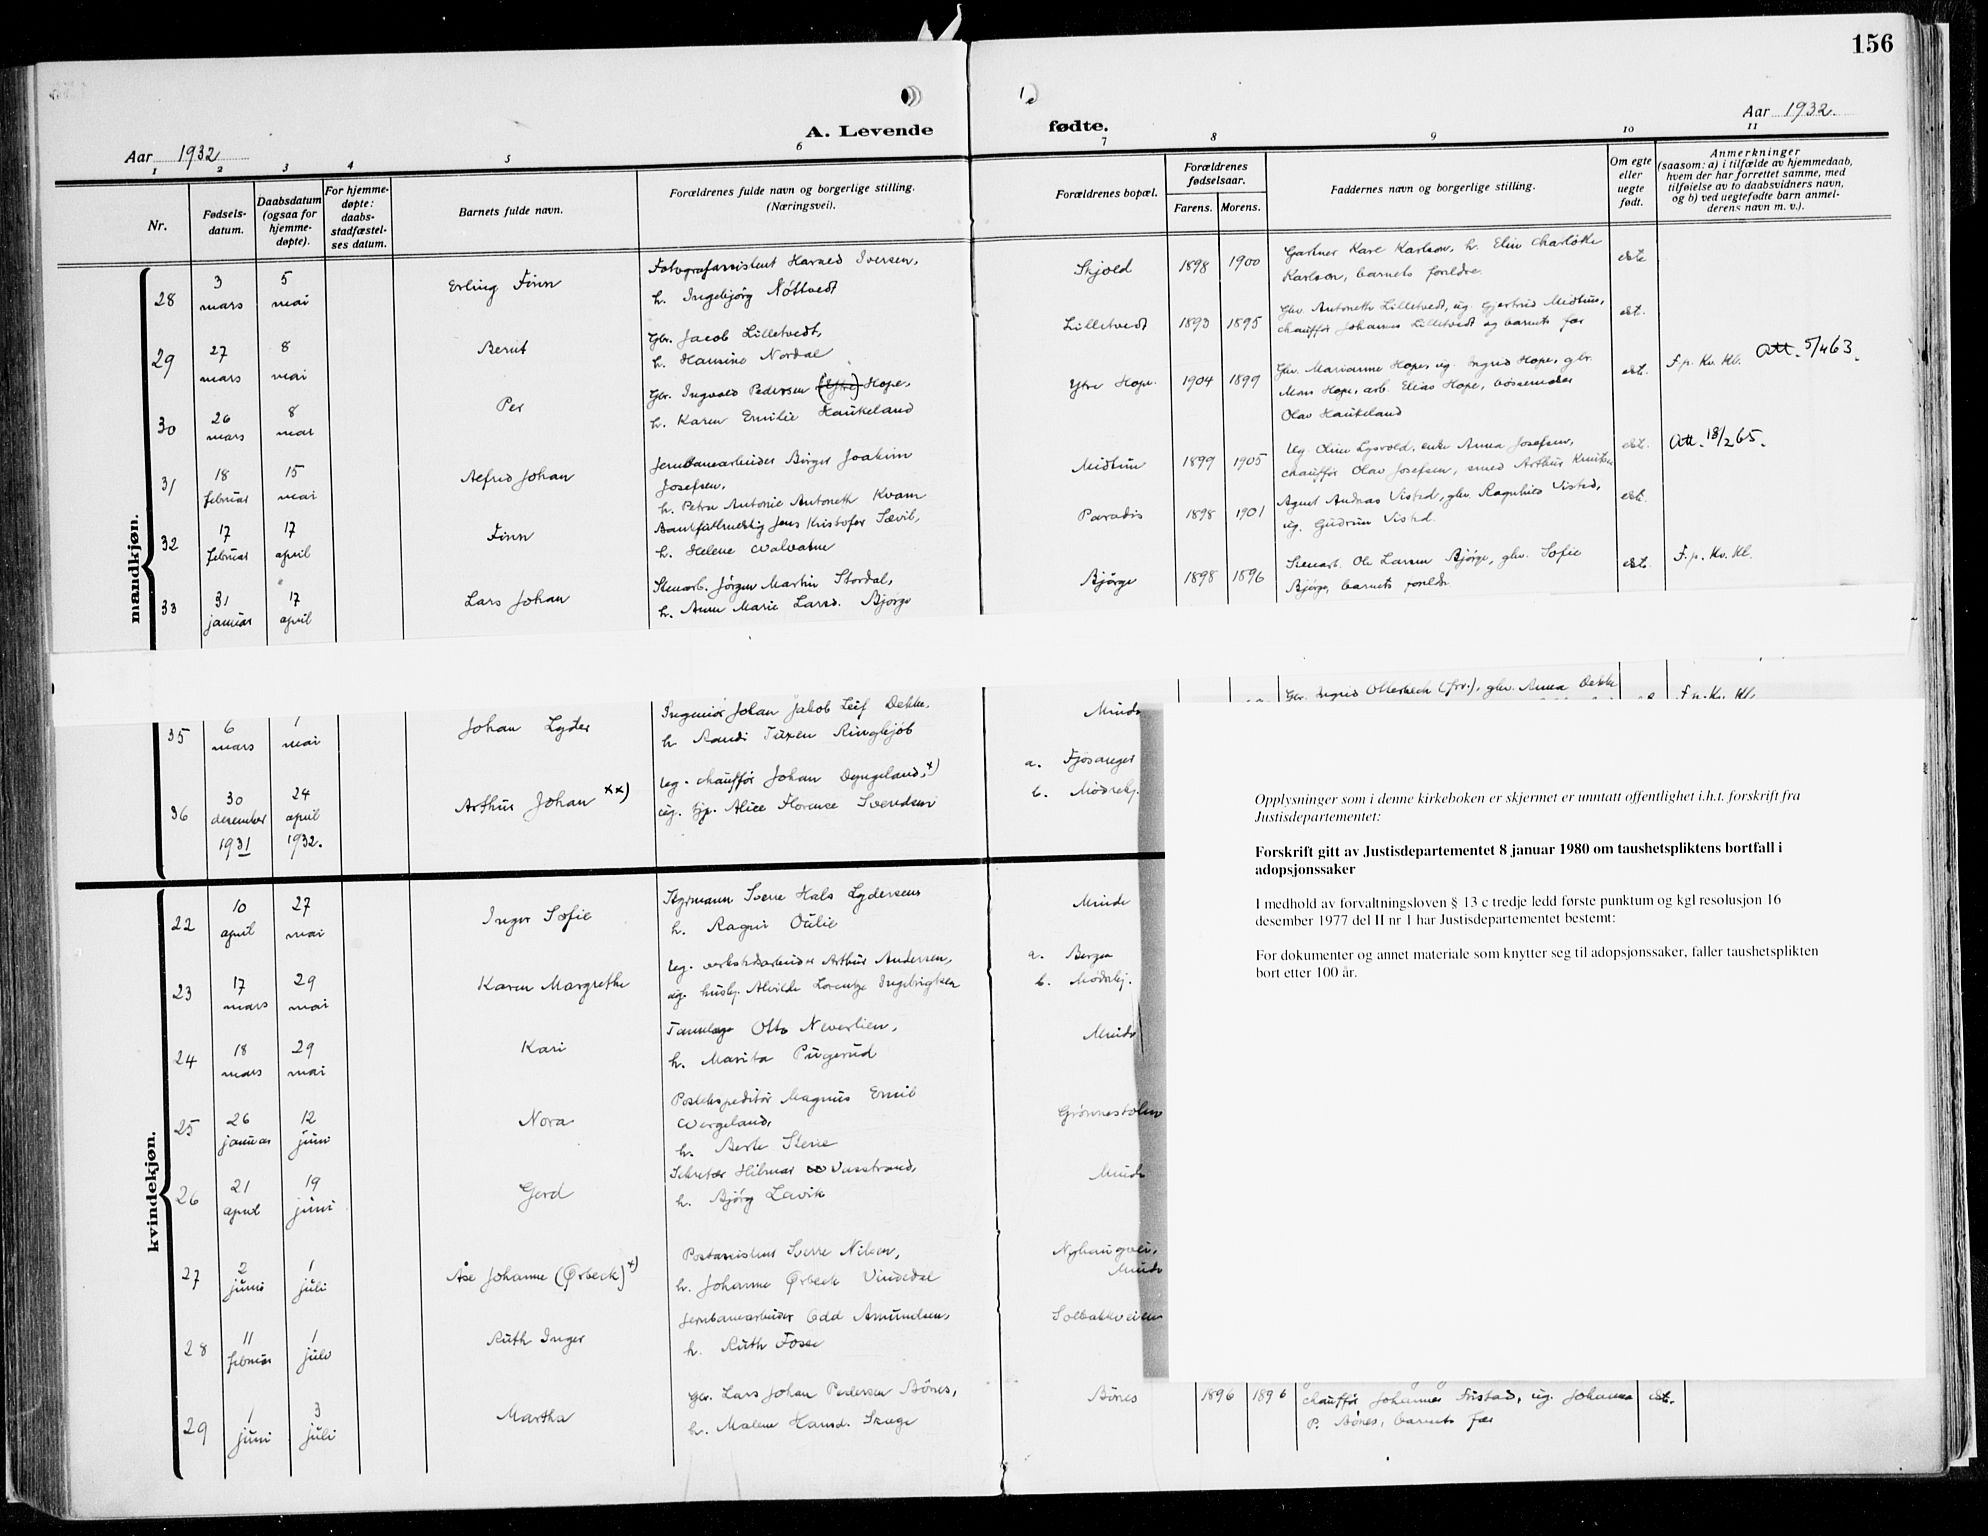 156
A. Levende fødte.
Aar 1932
Aar 1932.
1 2 3 4 5 6 7 8 9 10 11
Nr.
Fødsels-
datum.
Daabsdatum
(ogsaa for
hjemme-
døpte).
For hjemme-
døpte:
daabs-
stadfæstel-
ses datum.
Barnets fulde navn.
Forældrenes fulde navn og borgerlige stilling.
(Næringsvei).
Forældrenes bopæl.
Forældrenes
fødselsaar.
Farens. Morens.
Faddernes navn og borgerlige stilling.
Om egte
eller
uegte
født.
Anmerkninger
(saasom: a) i tilfælde av hjemmedaab,
hvem der har forrettet samme, med
tilføielse av to daabsvidners navn,
og b) ved uegtefødte barn anmel-
derens navn m. v.).
mandkjøn.
28
3 mars
5 mai
Erling Finn
Fotografassistent Harald Iversen,
h. Ingebjørg Nøttvedt
Skjold
1898 1900
Gartner Karl Karlson, h. Elin Charlotte
Karlson, barnets foreldre.
ekte
29
27 mars
8 mai
Berit
Gbr. Jacob Lilletvedt,
h. Hansine Nordal
Lilletvedt
1893 1895
Gbr. Antoneth Lilletvedt, ug. Gjertrud Midtun,
chauffør Johannes Lilletvedt og barnets far
ekt.
30
26 mars
8 mai
Per
Gbr. Ingvald Pedersen Hope,
h. Karen Emilie Haukeland
Ytre Hope.
1904 1899
Glv. Marianne Hope, ug. Ingrid Hope, gbr.
Mons Hope, arb. Elias Hope, bøssemaker
Olav Haukeland
ekt.
F.p. Kv. Kl. Att. 5/4 63.
31
18 februar
15 mai
Alfred Johan
Jernbanearbeider Birger Joakim
Josefsen,
h. Petra Antonie Antoneth Kvam
Midtun
1899 1905
Ug. Oline Lysvold, enke Anna Josefsen,
chauffør Olav Josefsen, smed Arthur Knutsen
ekt.
Att. 18/2 65.
32
17 februar
17 april
Finn
Bankfullmektig Jens Kristofer Sævil,
h. Helene Walvatne
Paradis
1898 1901
Agent Andreas Visted, glv. Ragnhild Visted,
ug. Gudrun Visted.
ekt.
33
31 januar
17 april
Lars Johan
Stenarb. Jørgen Martin Stordal,
h. Anna Marie Larsd. Bjørge
Bjørge
1898 1896
Stenarb. Ole Larsen Bjørge, glv. Sofie
Bjørge, barnets foreldre.
ekt.
F.p. Kv. Kl.
35
6 mars
1 mai
Johan Lyder
Ingeniør Johan Jakob Leif Dekke,
h. Randi Tuxen Ringkjøb
Minde
Glv. Ingrid Otterbech (frv.), glv. Anna Dekke
36
30 desember 1931
24 april 1932.
Arthur Johan xx)
Ug. chauffør Johan Dyngeland, x)
ug. tjp. Alice Florence Svendsen
a. Fjøsanger
b. Mødrehj.
kvindekjøn.
22
10 april
27 mai
Inger Sofie
Styrmann Sverre Hals Lydersens
h. Ragni Oulie
Minde
23
17 mars
29 mai
Karen Margrethe
Ug. verkstedsarbeider Arthur Andersen,
ug. hushj. Alvilde Lorentze Ingebrigtsen
a. Bergen
b. Mødrehj.
24
18 mars
29 mai
Kari
Tannlæge Otto Neverlien,
h. Marita Pugerud
Minde
25
26 januar
12 juni
Nora
Postekspeditør Magnus Emil
Wergeland,
h. Berte Stene
Grønnestølen
26
21 april
19 juni
Gerd
Sekretær Hilmar Vinstrand,
h. Bjørg Lavik
Minde
27
2 juni
1 juli
Åse Johanne (Ørbeck) x)
Postassistent Sverre Nilsen,
h. Johanne Ørbeck Vindedal
Nyhaugvei,
Minde
28
11 februar
1 juli
Ruth Inger
Jernbanearbeider Odd Amundsen,
h. Ruth Fosse
Solbakkveien
29
1 juni
3 juli
Martha
Gbr. Lars Johan Pedersen Bönes,
h. Malene Hansd. Skage
Bönes
1896 1896
chauffør Johannes Fristad, ug. Johanna
P. Bönes, barnets far
ekt.
Opplysninger som i denne kirkeboken er skjermet er unntatt offentlighet i.h.t. forskrift fra
Justisdepartementet:
Forskrift gitt av Justisdepartementet 8 januar 1980 om taushetspliktens bortfall i
adopsjonssaker
I medhold av forvaltningsloven § 13 c tredje ledd første punktum og kgl resolusjon 16
desember 1977 del II nr 1 har Justisdepartementet bestemt:
For dokumenter og annet materiale som knytter seg til adopsjonssaker, faller taushetsplikten
bort etter 100 år.